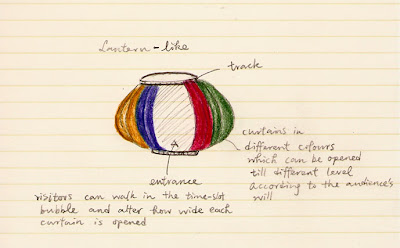 Lantern-like
track
curtains in
different colours
which can be opened
till different level
according to the audience's
will
entrance
visitors can walk in the time-slot
bubble and alter how wide each
curtain is opened